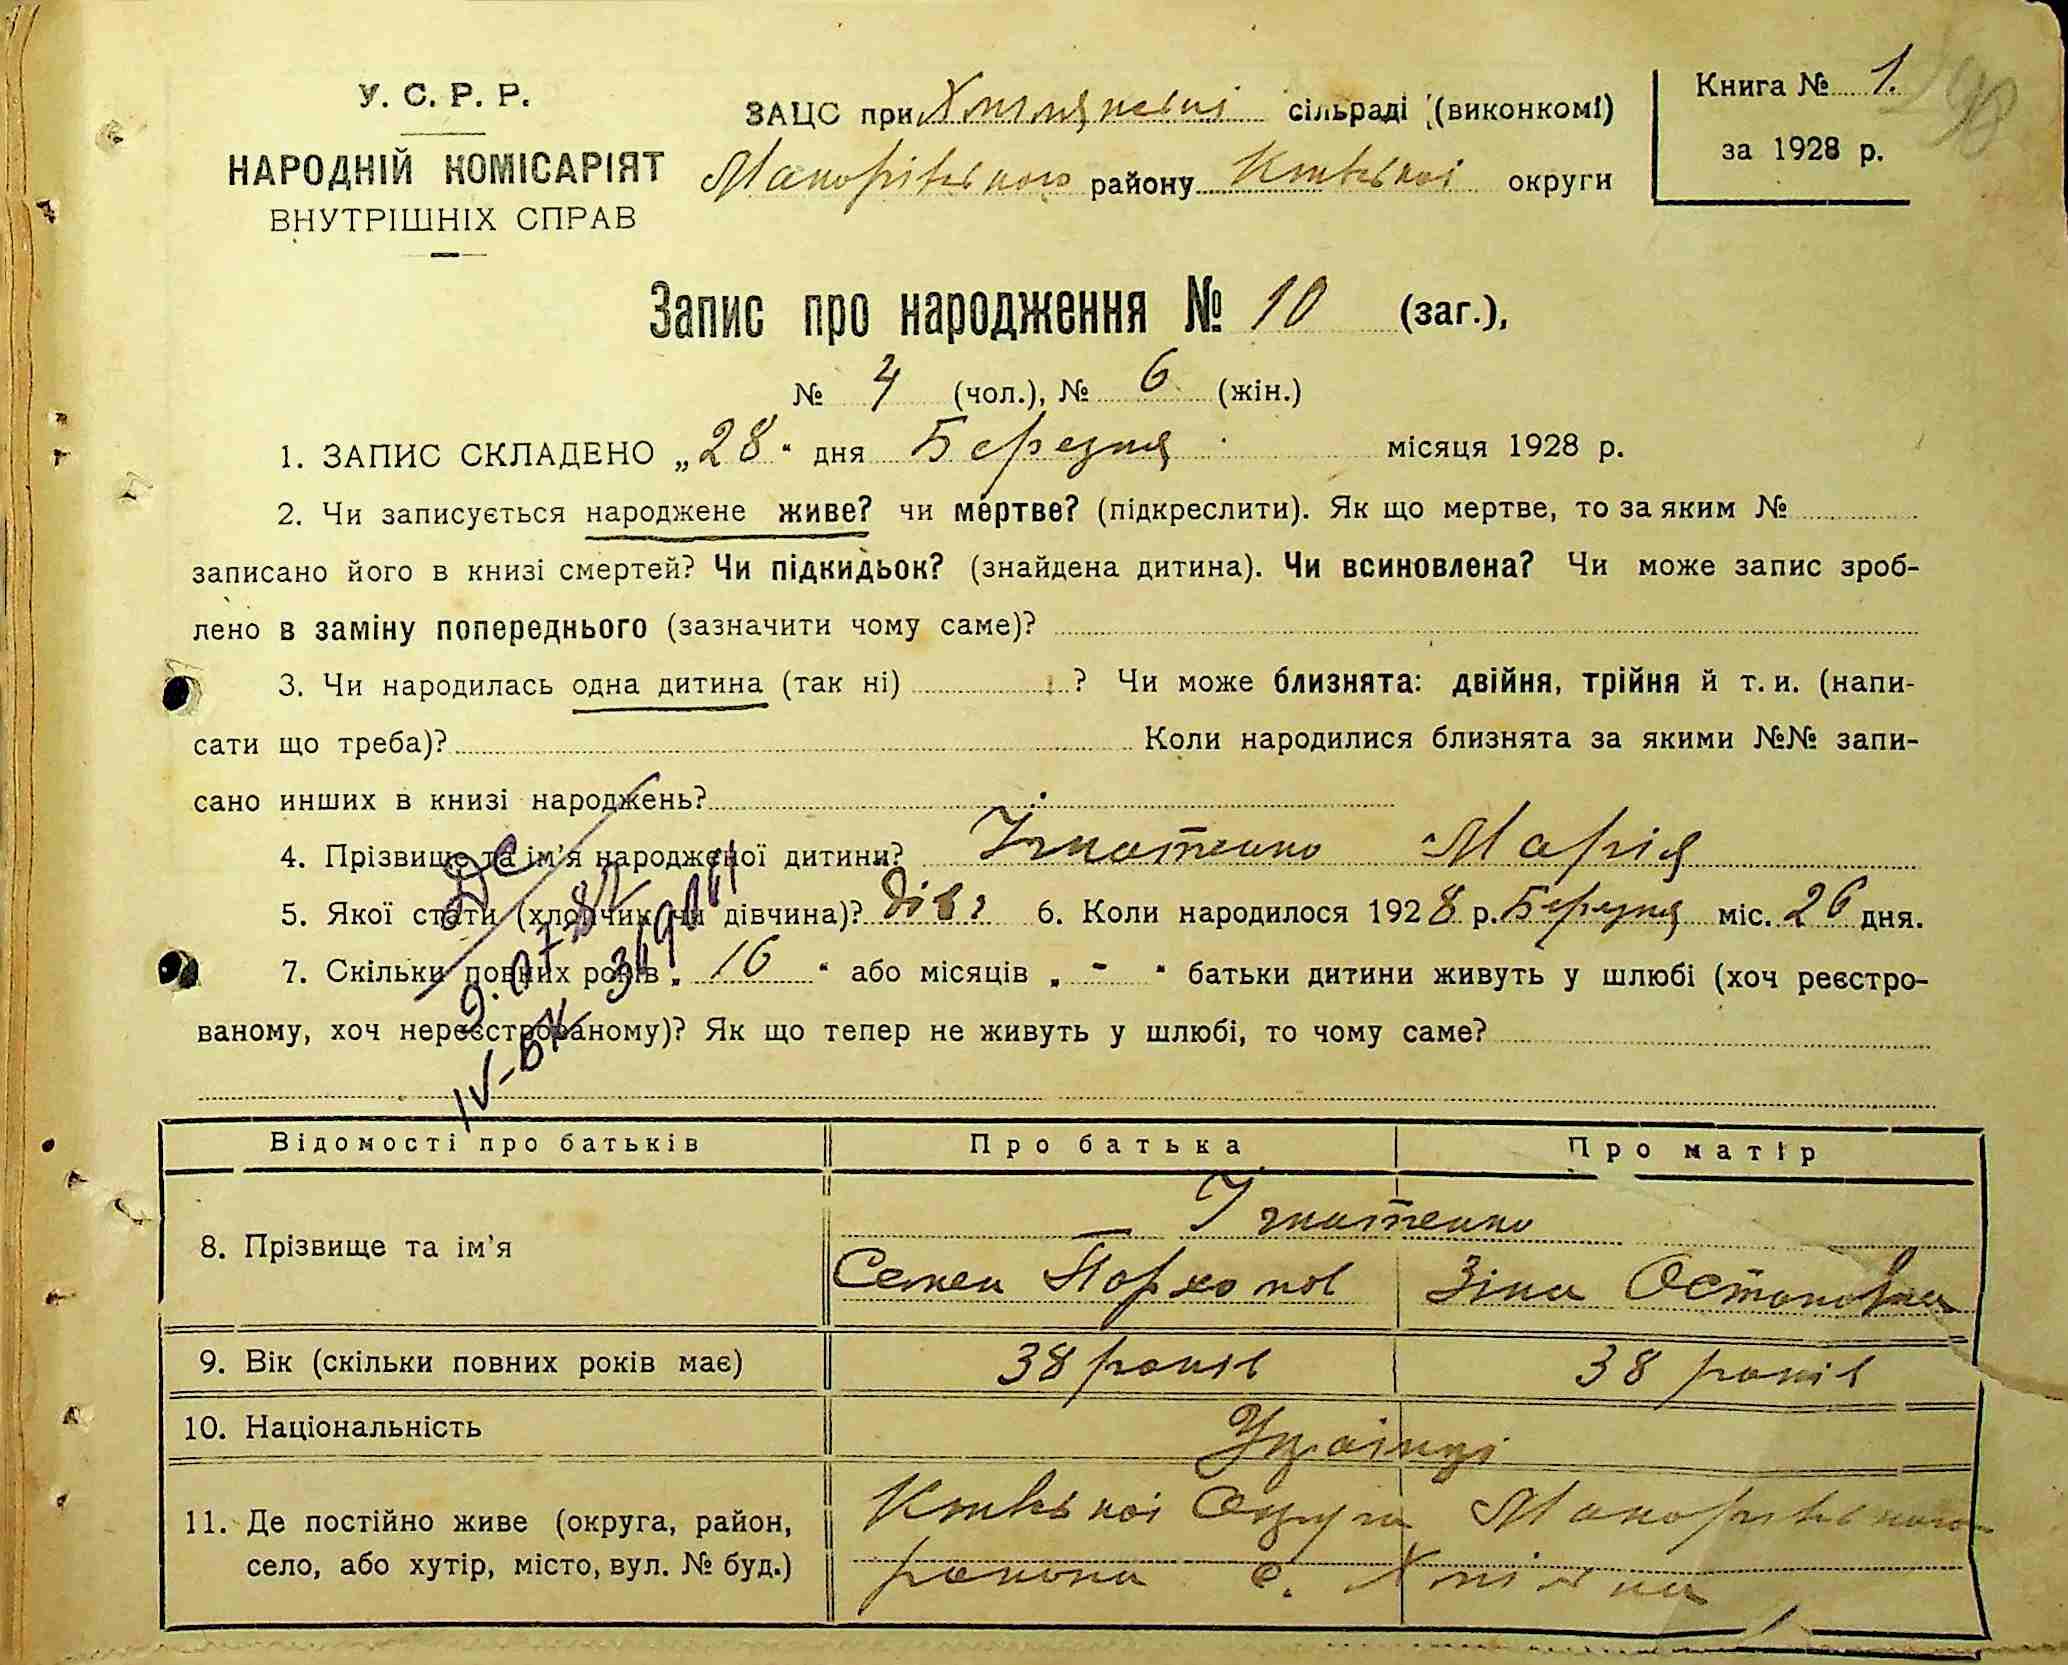 У. С. Р. Р.
НАРОДНІЙ КОМІСАРІЯТ
ВНУТРІШНІХ СПРАВ
ЗАЦС при сільраді (виконкомі)
Макарівського району Київської округи
Книга № 1.
за 1928 р.
Запис про народження № 10 (заг.),
№ 4 (чол.), № 6 (жін.)
1. ЗАПИС СКЛАДЕНО „28“ дня Березня місяця 1928 р.
2. Чи записується народжене живе? чи мертве? (підкреслити). Як що мертве, то за яким №
записано його в книзі смертей? Чи підкидьок? (знайдена дитина). Чи всиновлена? Чи може запис зроб-
лено в заміну попереднього (зазначити чому саме)?
3. Чи народилась одна дитина (так ні) ? Чи може близнята: двійня, трійня й т. и. (напи-
сати що треба)? Коли народилися близнята за якими №№ запи-
сано инших в книзі народжень?
4. Прізвище та ім'я народженої дитини? Ігнатенко Марія
5. Якої стати (хлопчик чи дівчина)? дівч 6. Коли народилося 1928 р. Березня міс. 26 дня.
7. Скільки повних років „16“ або місяців „-“ батьки дитини живуть у шлюбі (хоч реєстро-
ваному, хоч нереєстрованому)? Як що тепер не живуть у шлюбі, то чому саме?
Відомості про батьків Про батька Про матір
8. Прізвище та ім'я Ігнатенко
Семен Пархомов Зіна Остаповна
9. Вік (скільки повних років має) 38 років 38 років
10. Національність Українці
11. Де постійно живе (округа, район, Київської Округи Макарівського
село, або хутір, місто, вул. № буд.) района с.